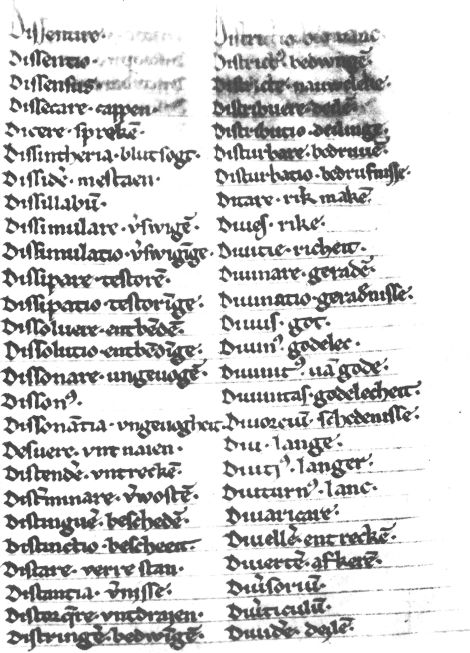 Dissentire
Dissentio
Dissensus
Dissecare · cappen ·
Dicere · sprekē ·
Dissintheria · blutsogt ·
Dissidē · mestaen ·
Dissillabū ·
Dissimulare · v̄swigē ·
Dissimulatio · v̄swigīge ·
Dissipare · testorē ·
Dissipatio · testorīge ·
Dissoluere · entbēdē ·
Dissolutio · entbēdīge ·
Dissonare · ungeuogē ·
Dissonꝰ ·
Dissonātia · vngeuogheit ·
Desuere · vnt naien ·
Distendē · vntreckē ·
Distīminare · v̄wostē ·
Distinguē · beschedē ·
Distinctio · bescheeit ·
Distare · verre stan ·
Distantia · v̄nisse ·
Distorq̄re · vntdraien ·
Distringē · bedwīgē ·
Districtꝰ · bedwūgē ·
Districte · nauweleke ·
Distribuere · deilē ·
Distributio · deilinge ·
Disturbare · bedruuē ·
Disturbatio · bedrufnisse ·
Ditare · rik makē ·
Diues · rike ·
Diuitie · richeit ·
Diuinare · geradē ·
Diuinatio · geradnisse ·
Diuus · got ·
Diuinꝰ · godelec ·
Diuinitꝰ · uā gode ·
Diuinitas · godelecheit ·
Diuorciū · schedenisse ·
Diu · lange ·
Diutiꝰ · langer ·
Diuturnꝰ · lanc ·
Diuaricare ·
Diuellē · ent reckē ·
Diuertē · af kerē ·
Diu̅soriū ·
Diu̅ticulū ·
Diuidē · deilē ·